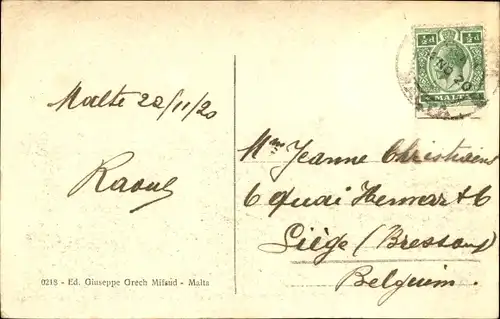 ½d ½d
MALTA
NO 20
Malte 20/11/20
Raoul
Jeanne Christiaens
6 Quai
Liège (Bressoux)
Belgium.
0218 - Ed. Giuseppe Grech Mifsud - Malta